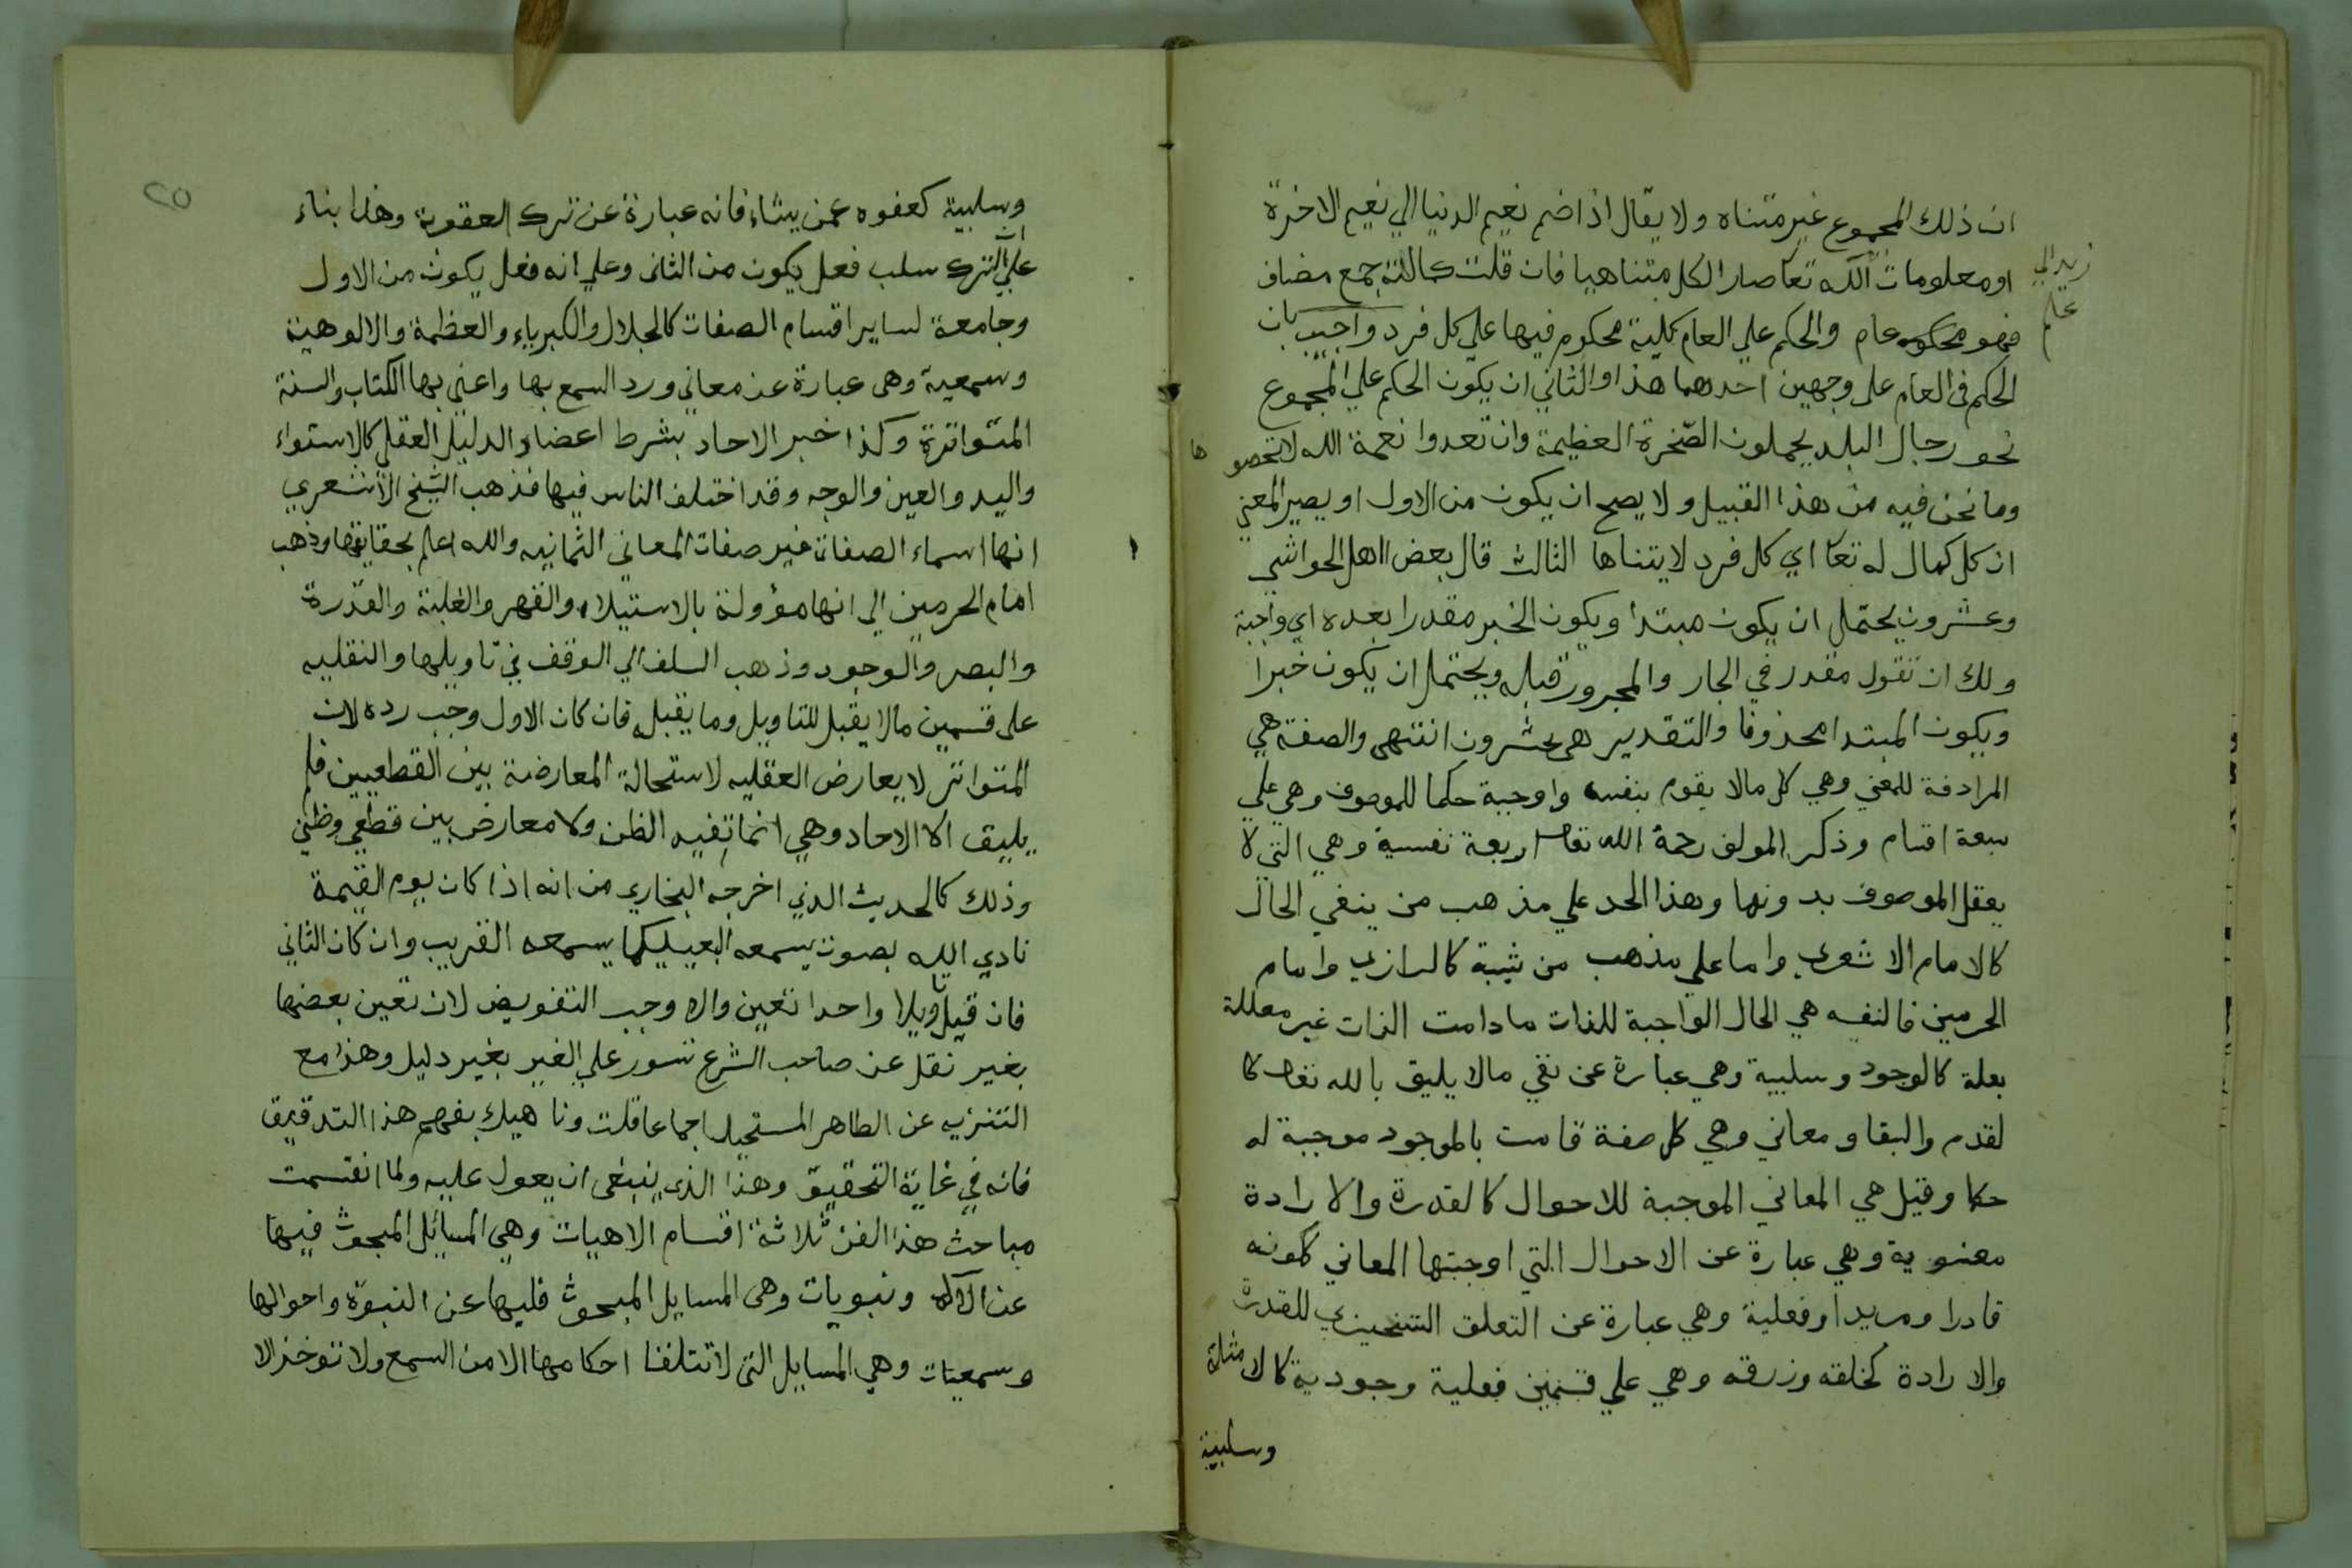 ان ذلك المجموع غير متناه ولا يقال اذا ضم نعيم الدنيا الي نعيم الاخرة
او معلومات الله تعا صار الكل متناهيا فان قلت كمالته جمع مضاف
فهو محكوم عام والحكم علي العام كلية محكوم فيها علي كل فرد واجيب بان
الحكم في العام على وجهين احدهما هذا والثاني ان يكون الحكم علي المجموع
نحو رجال البلد يحملون الصخرة العظيمة وان تعدوا نعمة الله لا تحصو ها
وما نحن فيه من هذا القبيل ولا يصح ان يكون من الاول او يصير المعني
ان كل كمال له تعا اي كل فرد لا يتناها الثالث قال بعض اهل الحواشي
وعشرون يحتمل ان يكون مبتدا ويكون الخبر مقدرا بعده اي واجبة
ولك ان تقول مقدر في الجار والمجرور قبله ويحتمل ان يكون خبرا
ويكون المبتدا محذوفا والتقدير هي عشرون انتهى والصفة هي
المرادفة للمعني وهي كل مالا يقوم بنفسه واوجبة حكما للموصوف وهي علي
سبعة اقسام وذكر المولف رحمة الله تعالى اربعة نفسية وهي التي لا
يعقل الموصوف بدونها وهذا الحد علي مذهب من ينفي الحال
كالامام الاشعري واما علي مذهب من يثبته كالرازي وامام
الحرمين فالنفسه هي الحال الواجبة للذات مادامت الذات غير معللة
بعلة كالوجود وسلبية وهي عبارة عن نفي مالا يليق بالله تعالى كا
لقدم والبقا ومعاني وهي كل صفة قامت بالموجود موجبة له
حكما وقيل هي المعاني الموجبة للاحوال كالقدرة والارادة
معنوية وهي عبارة عن الاحوال التي اوجبتها المعاني ككونه
قادرا ومريدا وفعلية وهي عبارة عن التعلق التنجيزي للقدرة
والارادة كخلقه وزرقه وهي علي قسمين فعلية وجودية كالامثلة
وسلبية
زيد الي
علم
٢٥
وسلبية كعفوه عمن يشاء فانه عبارة عن ترك العقوبة وهذا بناء
علي ان الترك سلب فعل يكون من الثاني وعلي انه فعل يكون من الاول
وجامعة لساير اقسام الصفات كالجلال والكبرياء والعظمة والالوهية
وسمعية وهي عبارة عن معاني ورد السمع بها واعني بها الكتاب والسنة
المتواترة وكذا خبر الاحاد بشرط اعضاد الدليل العقلي كالاستواء
واليد والعين والوجه وقد اختلف الناس فيها فذهب الشيخ الاشعري
انها اسماء الصفات غير صفات المعاني الثمانيه والله اعلم بحقايقها وذهب
امام الحرمين الي انها مؤولة بالاستيلاء والقهر والغلبة والقدرة
والبصر والوجود وذهب السلف الي الوقف في تاويلها والنقليه
على قسمين مالا يقبل للتاويل وما يقبل فان كان الاول وجب رده لان
المتواتر لا يعارض العقليه لاستحالة المعارضة بين القطعيين فلم
يليق الا الاحاد وهي انما تفيد الظن ولا معارض بين قطعي وظني
وذلك كالحديث الذي اخرجه البخاري من انه اذا كان يوم القيمة
نادي الله بصوت يسمعه البعيد كما يسمعه القريب وان كان الثاني
فان قبل تاويلا واحدا تعين والا وجب التفويض لان تعين بعضها
بغير نقل عن صاحب الشرع تسور علي الغير بغير دليل وهذا مع
التنزيه عن الظاهر المستحيل اجماعا قلت وناهيك بفهم هذا التدقيق
فانه في غاية التحقيق وهذا الذي ينبغي ان يعول عليه ولما انقسمت
مباحث هذا الفن ثلاثة اقسام الاهيات وهي المسائل المبحوث فيها
عن الاله ونبويات وهي المسايل المبحوث فليها عن النبوة واحوالها
وسمعيات وهي المسايل التي لا تتلفا احكامها الا من السمع ولا توخذ الا